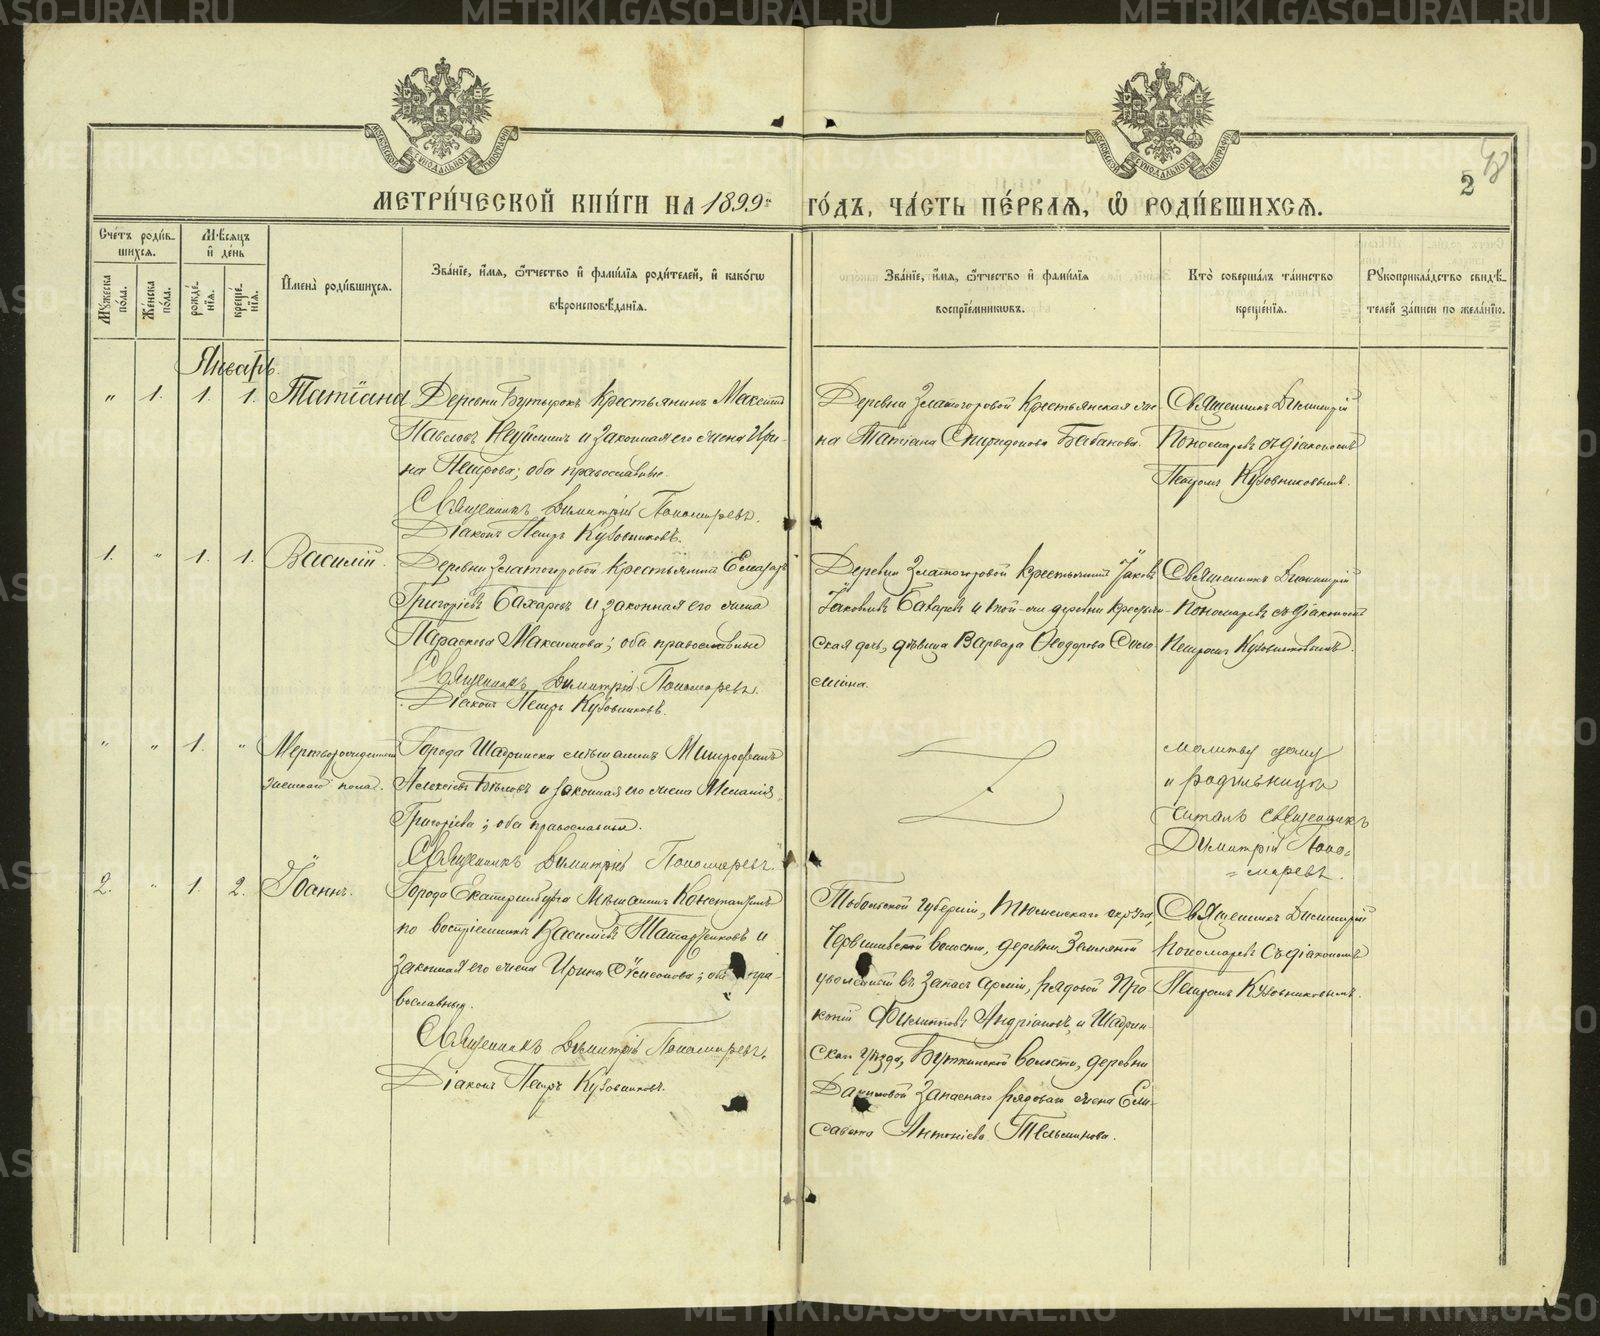 МЕТРИ́ЧЕСКОЙ КНИ́ГИ НА 1899й ГО́ДЪ, ЧА́СТЬ ПЕ́РВАЯ, Ѡ РОДИ́ВШИХСЯ.
2
Сче́тъ роди́вшихся.
Мꙋ́жеска по́ла.
Же́нска по́ла.
Мѣ́сяцъ и́ де́нь
рожде́нїя.
креще́нїя.
И҆мена̀ роди́вшихся.
Зва́нїе, и҆́мя, ѻ҆́тчество и҆ фами́лїя роди́телей, и҆ како́гѡ
вѣроисповѣ́данїя.
Зва́нїе, и҆́мя, ѻ҆́тчество и҆ фами́лїя
воспрїе́мникѡвъ.
Кто̀ соверша́лъ та́инство
креще́нїя.
Рꙋкоприкла́дство свидѣ́-
телей за́писи по жела́нїю.
Январь.
" 1. 1. 1. Татіана
Деревни Бутырокъ крестьянинъ Максимъ
Павловъ Неуйминъ и законная его жена Ири-
на Петрова; оба православные.
Священникъ Димитрій Пономаревъ.
Діаконъ Петръ Кузовниковъ.
Деревни Златогоровой крестьянская же-
на Татіана Спиридонова Бабанова.
Священникъ Димитрій
Пономаревъ съ діакономъ
Петромъ Кузовниковымъ.
1. " 1. 1. Василій.
Деревни Златогоровой крестьянинъ Елеазаръ
Григорьевъ Бахаревъ и законная его жена
Параскева Максимова; оба православные
Священникъ Димитрій Пономаревъ.
Діаконъ Петръ Кузовниковъ.
Деревни Златогоровой крестьянинъ Іаковъ
Іаковлевъ Бахаревъ и той-же деревни крестьян-
ская дочь, дѣвица Варвара Ѳеодорова
Священникъ Димитрій
Пономаревъ съ діакономъ
Петромъ Кузовниковымъ.
" " 1. " Мертворожденный
женскаго пола.
Города Шадринска мѣщанинъ Митрофанъ
Алексіевъ Бѣловъ и законная его жена Меланія
Григоріева; оба православные.
Священникъ Димитрій Пономаревъ.
Молитву дому
и родильницѣ
читалъ священникъ
Димитрій Поно-
маревъ.
2. " 1. 2. Іоаннъ.
Города Екатеринбурга мѣщанинъ Константинъ
по воспріемникѣ Васильевъ Татарченковъ и
законная его жена Ирина Симеонова; оба пра-
вославные.
Священникъ Димитрій Пономаревъ.
Діаконъ Петръ Кузовниковъ.
Тобольской губерніи, Тюменскаго округа,
Червишевской волости, деревни
уволенный въ запасъ арміи, рядовой Про-
копій Филипповъ Андріановъ, и Шадрин-
скаго уѣзда, Буткинской волости, деревни
запаснаго рядоваго жена Ели-
савета Антоніева Тельминова.
Священникъ Димитрій
Пономаревъ съ діакономъ
Петромъ Кузовниковымъ.
METRIKI.GASO-URAL.RU